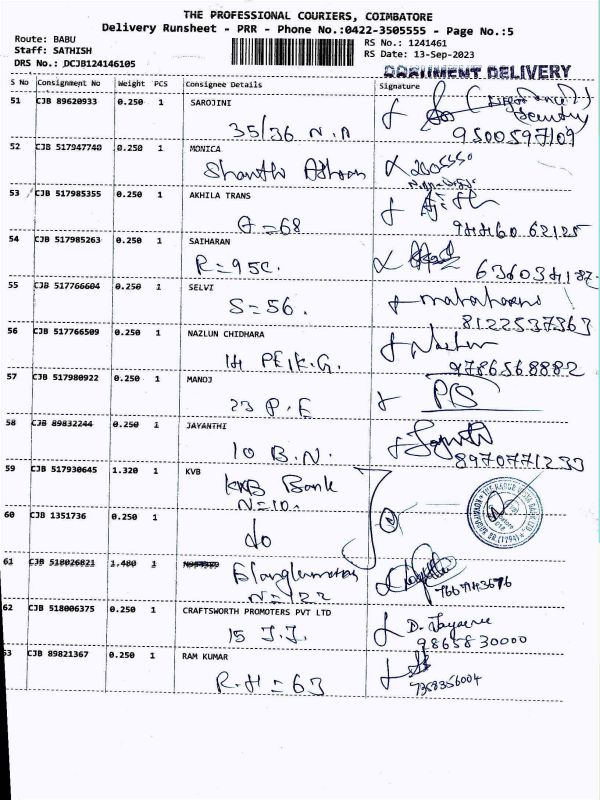 THE PROFESSIONAL COURIERS, COIMBATORE
Delivery Runsheet - PRR - Phone No.:0422-3505555 - Page No.:5
Route: BABU
Staff: SATHISH
DRS No.: DCJB124146105
RS No.: 1241461
RS Date: 13-Sep-2023
DOCUMENT DELIVERY
S No Consignment No Weight PCS Consignee Details Signature
51 CJB 89620933 0.250 1 SAROJINI
Security
35/36 N.N 9500597109
52 CJB 517947740 0.250 1 MONICA
53 CJB 517985355 0.250 1 AKHILA TRANS
G=68 94460 62125
54 CJB 517985263 0.250 1 SAIHARAN
R=95C. 636034187
55 CJB 517766604 0.250 1 SELVI
S=56. 8122537363
56 CJB 517766509 0.250 1 NAZLUN CHIDHARA
14 PEIK.G. 9786568882
57 CJB 517980922 0.250 1 MANOJ
23 P.E
58 CJB 89832244 0.250 1 JAYANTHI
10 B.N. 8970771233
59 CJB 517930645 1.320 1 KVB
KVB Bank
N=10.
60 CJB 1351736 0.250 1
do
61 CJB 518026821 1.480 1
N=122 7667143676
62 CJB 518006375 0.250 1 CRAFTSWORTH PROMOTERS PVT LTD
15 J.J. 9865830000
53 CJB 89821367 0.250 1 RAM KUMAR
R.H=63 7358356004